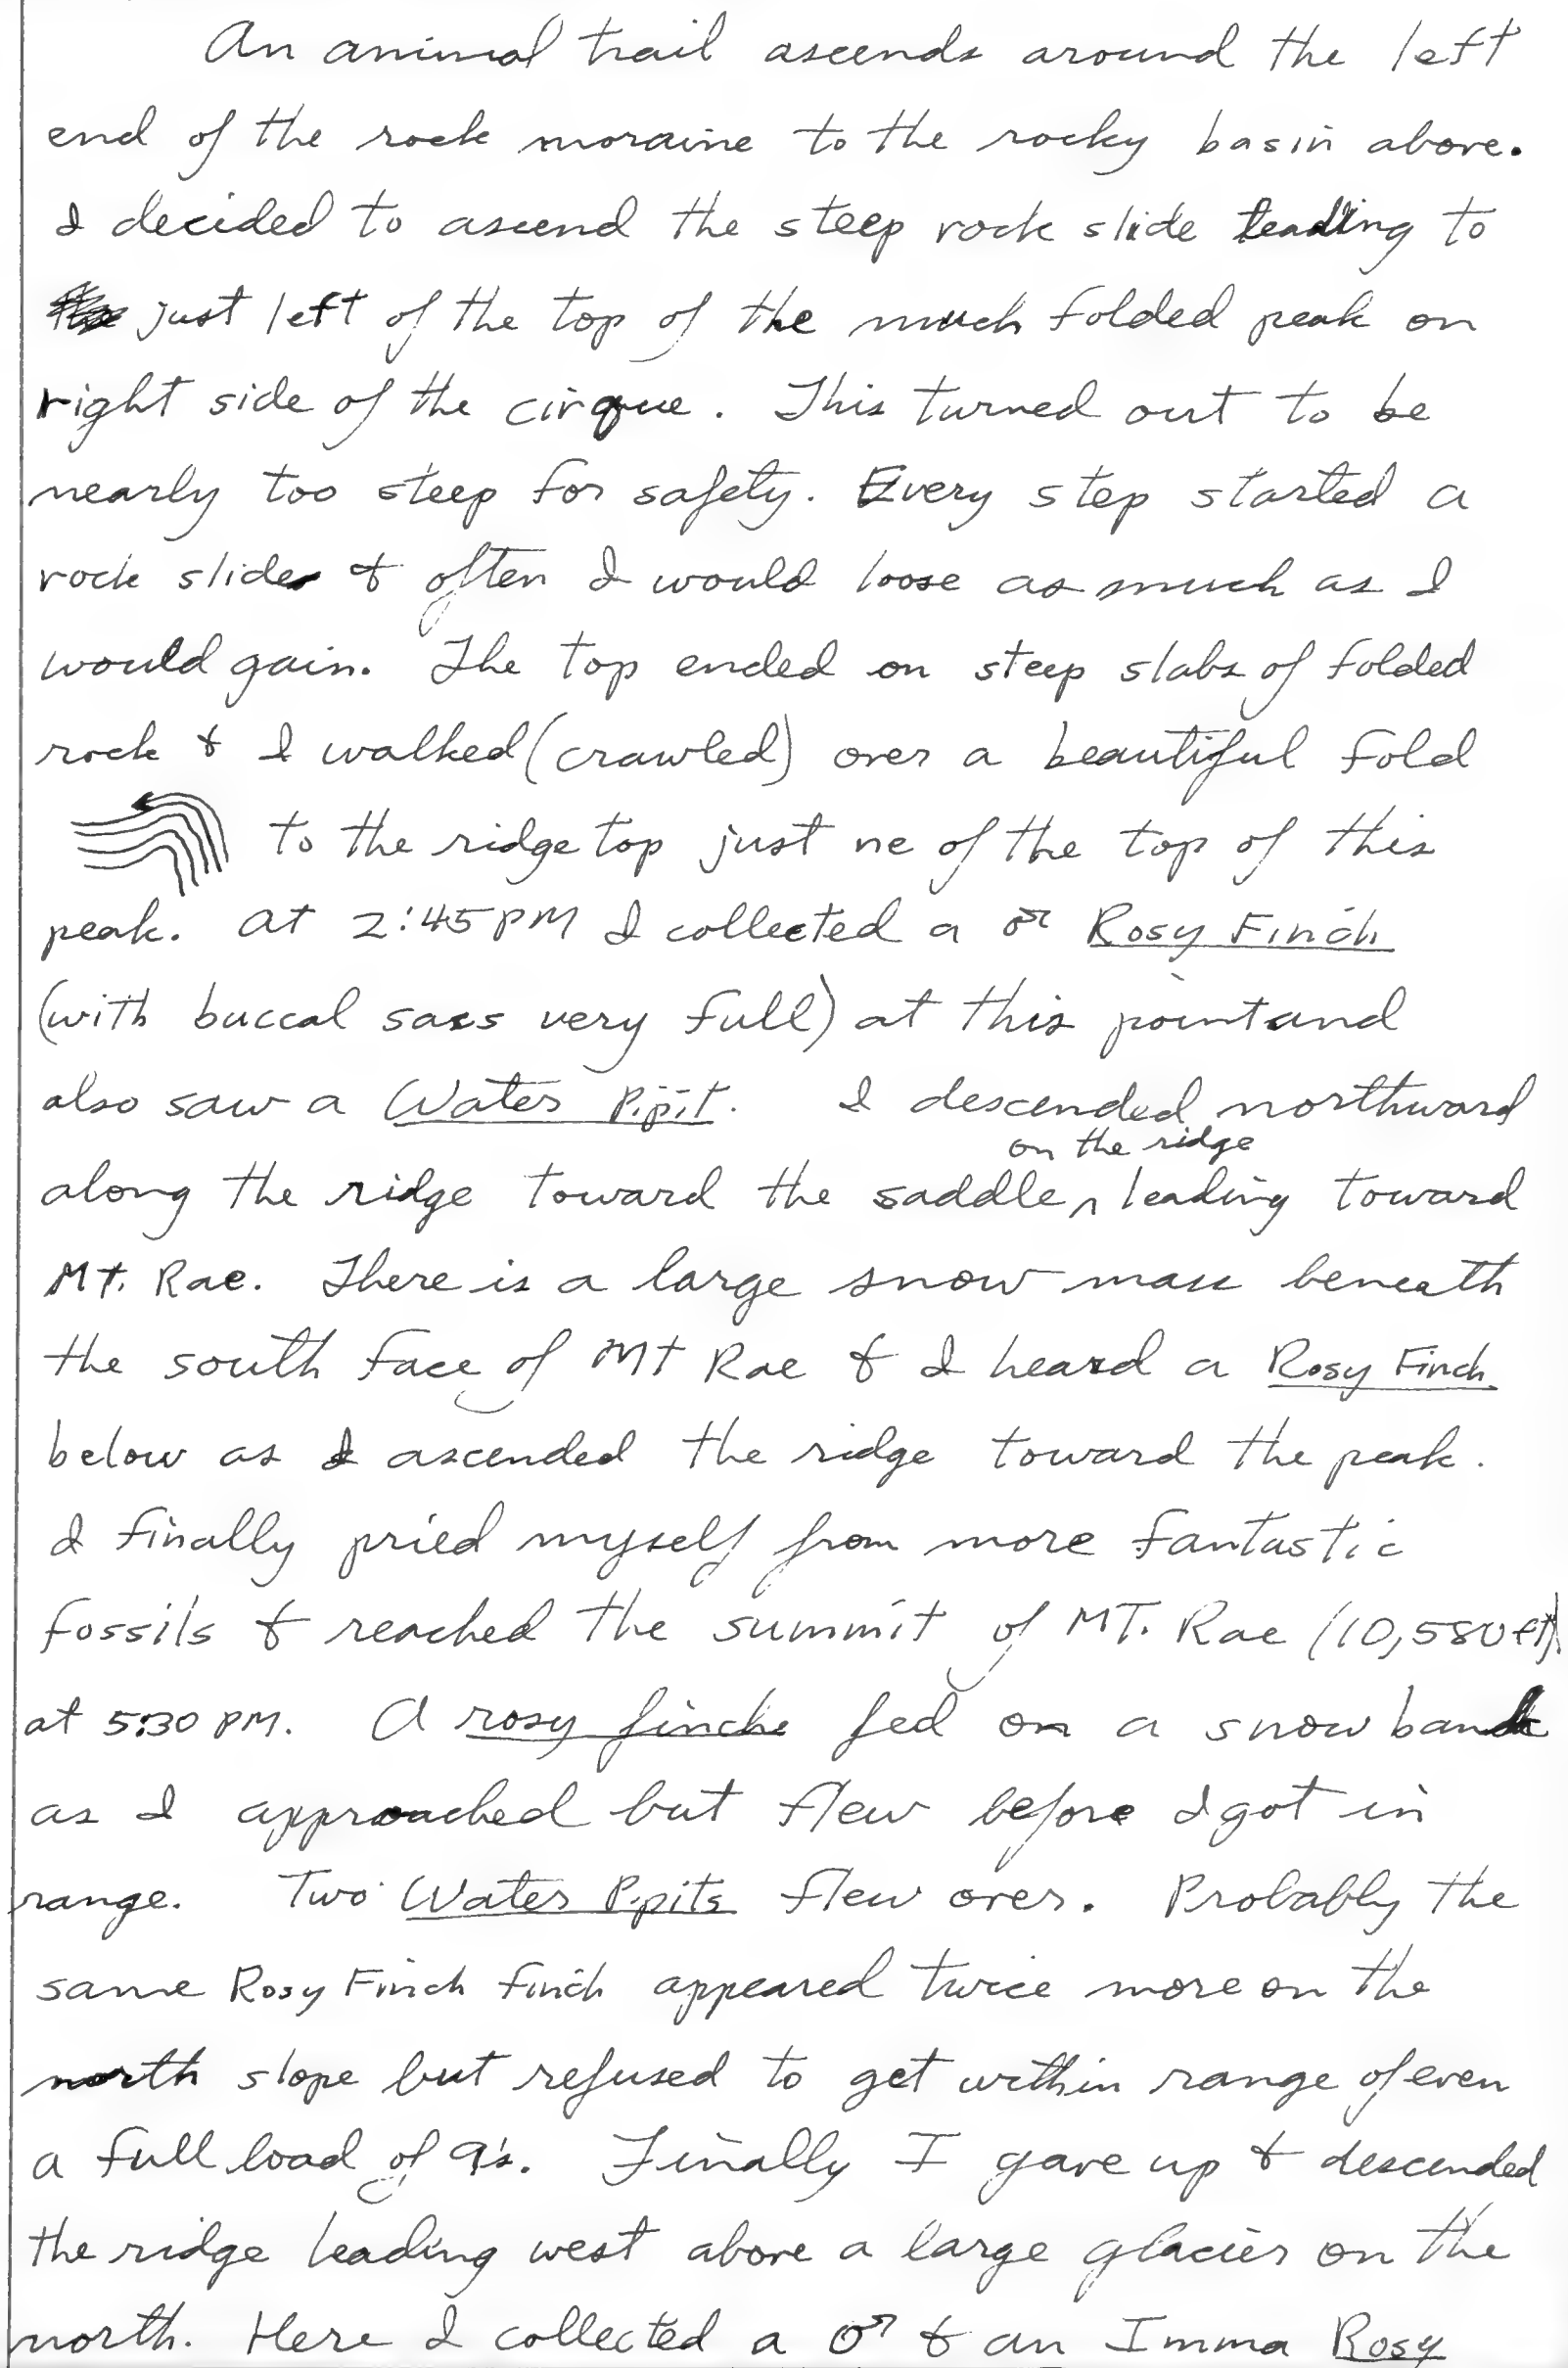 An animal trail ascends around the left
end of the rock moraine to the rocky basin above.
I decided to ascend the steep rock slide leading to
just left of the top of the much folded peak on
right side of the cirque. This turned out to be
nearly too steep for safety. Every step started a
rock slide & often I would loose as much as I
would gain. The top ended on steep slabs of folded
rock & I walked (crawled) over a beautiful fold
to the ridge top just ne of the top of this
peak. At 2:45 PM I collected a ♂ Rosy Finch
(with buccal sacs very full) at this point and
also saw a Water Pipit. I descended northward
on the ridge
along the ridge toward the saddle ^ leading toward
Mt. Rae. There is a large snow mass beneath
the south face of Mt Rae & I heard a Rosy Finch
below as I ascended the ridge toward the peak.
I finally pried myself from more fantastic
fossils & reached the summit of MT. Rae (10,580 ft)
at 5:30 PM. A rosy finch fed on a snow bank
as I approached but flew before I got in
range. Two Water Pipits flew over. Probably the
same Rosy Finch finch appeared twice more on the
north slope but refused to get within range of even
a full load of 9's. Finally I gave up & descended
the ridge leading west above a large glacier on the
north. Here I collected a ♂ & an Imma Rosy